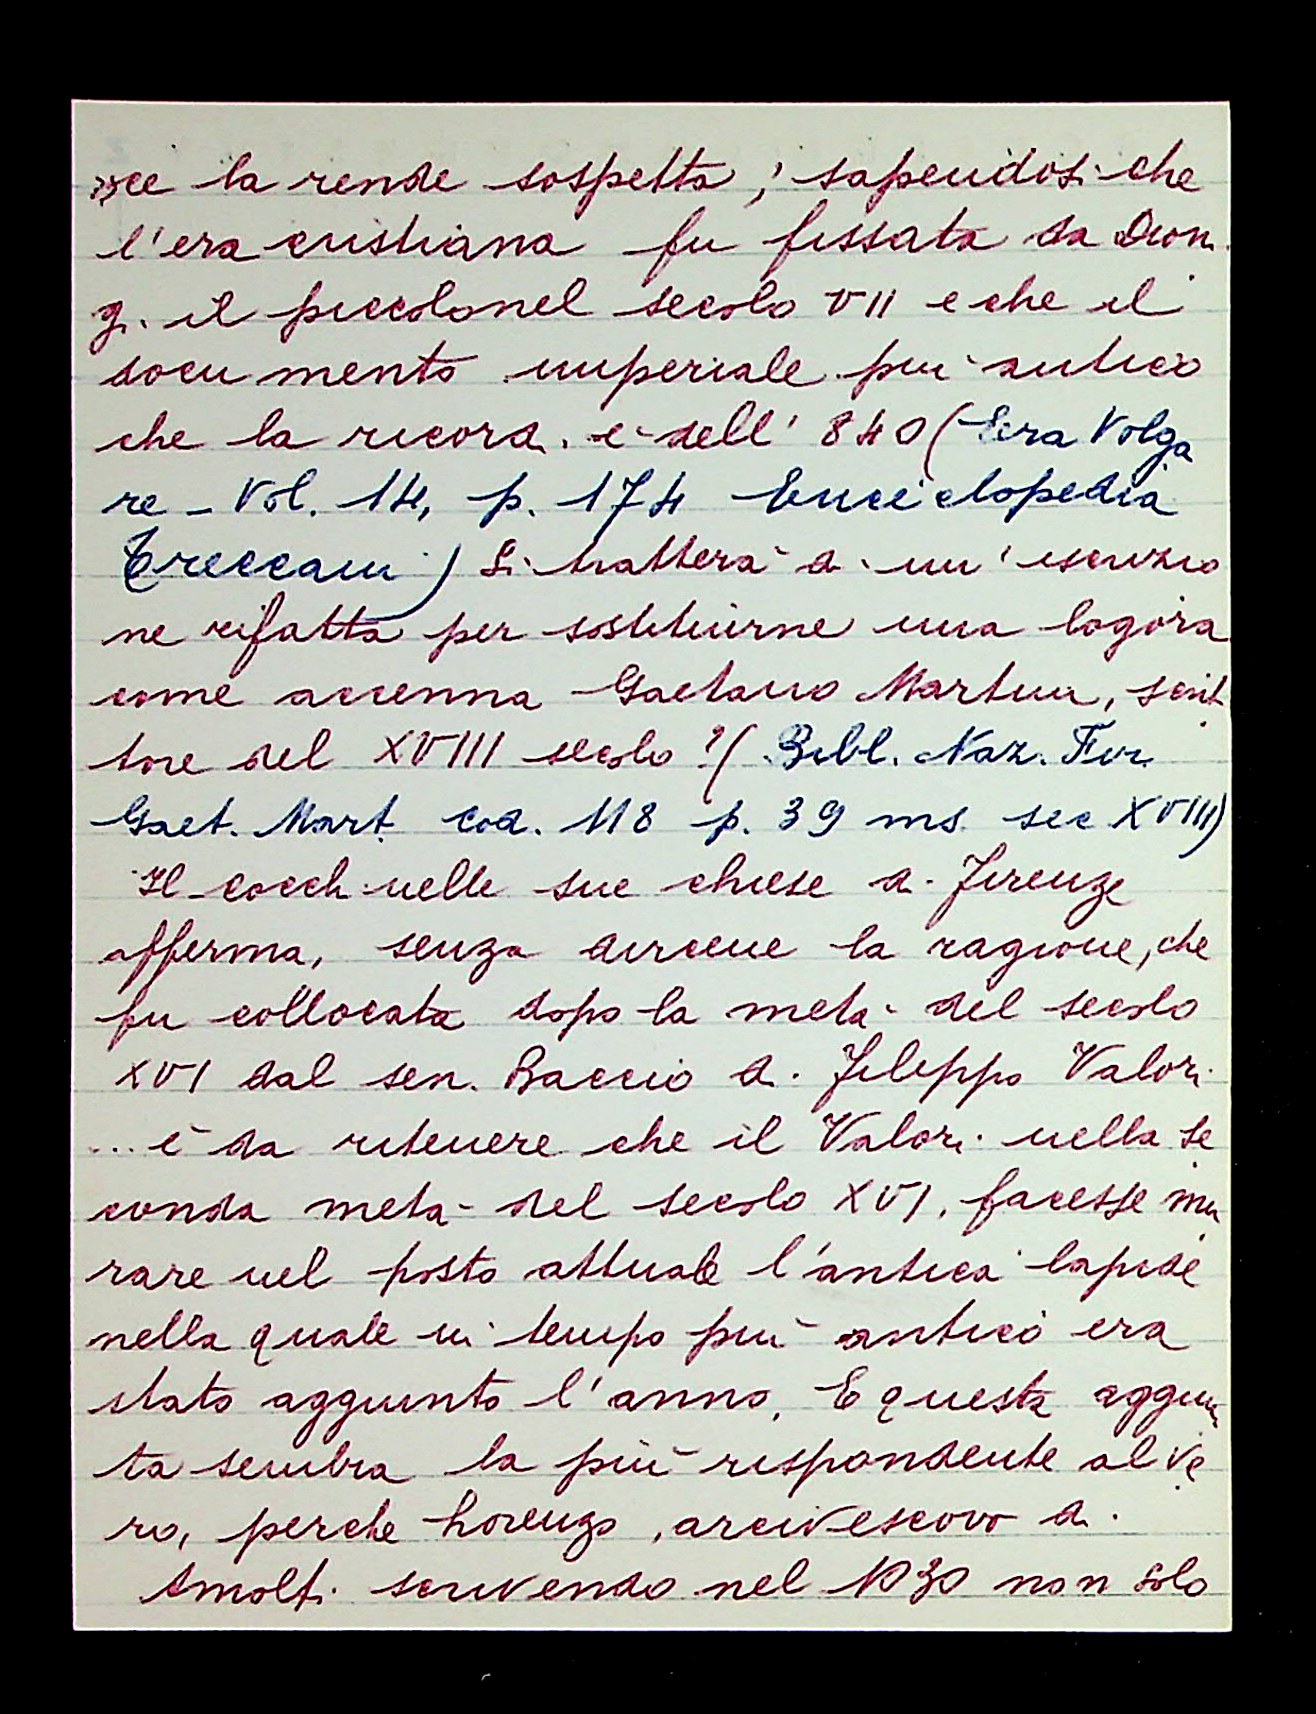 sce la rende sospetta, sapendosi che
l'era cristiana fu fissata da Dion
gi. il piccolo nel secolo VII e che il
documento imperiale più antico
che la ricorda è dell' 840 (Era Volga
re - Vol. 14, p. 174 Enciclopedia
Treccani) Si tratterà di un'iscrizio
ne rifatta per sostituirne una logora
come accenna Gaetano Martini, scrit
tore del XVIII secolo? (Bibl. Naz. Fir.
Gaet. Mart. cod. 118 p. 39 ms. sec XVIII)
Il Cocchi nelle sue chiese di Firenze
afferma, senza dircene la ragione, che
fu collocata dopo la metà del secolo
XVI dal sen. Baccio di Filippo Valori
... è da ritenere che il Valori nella se
conda metà del secolo XVI, facesse mu
rare nel posto attuale l'antica lapide
nella quale in tempo più antico era
stato aggiunto l'anno. E questa aggiun
ta sembra la più rispondente al ve
ro, perche Lorenzo, arcivescovo di
Amolfi scrivendo nel 1030 non solo